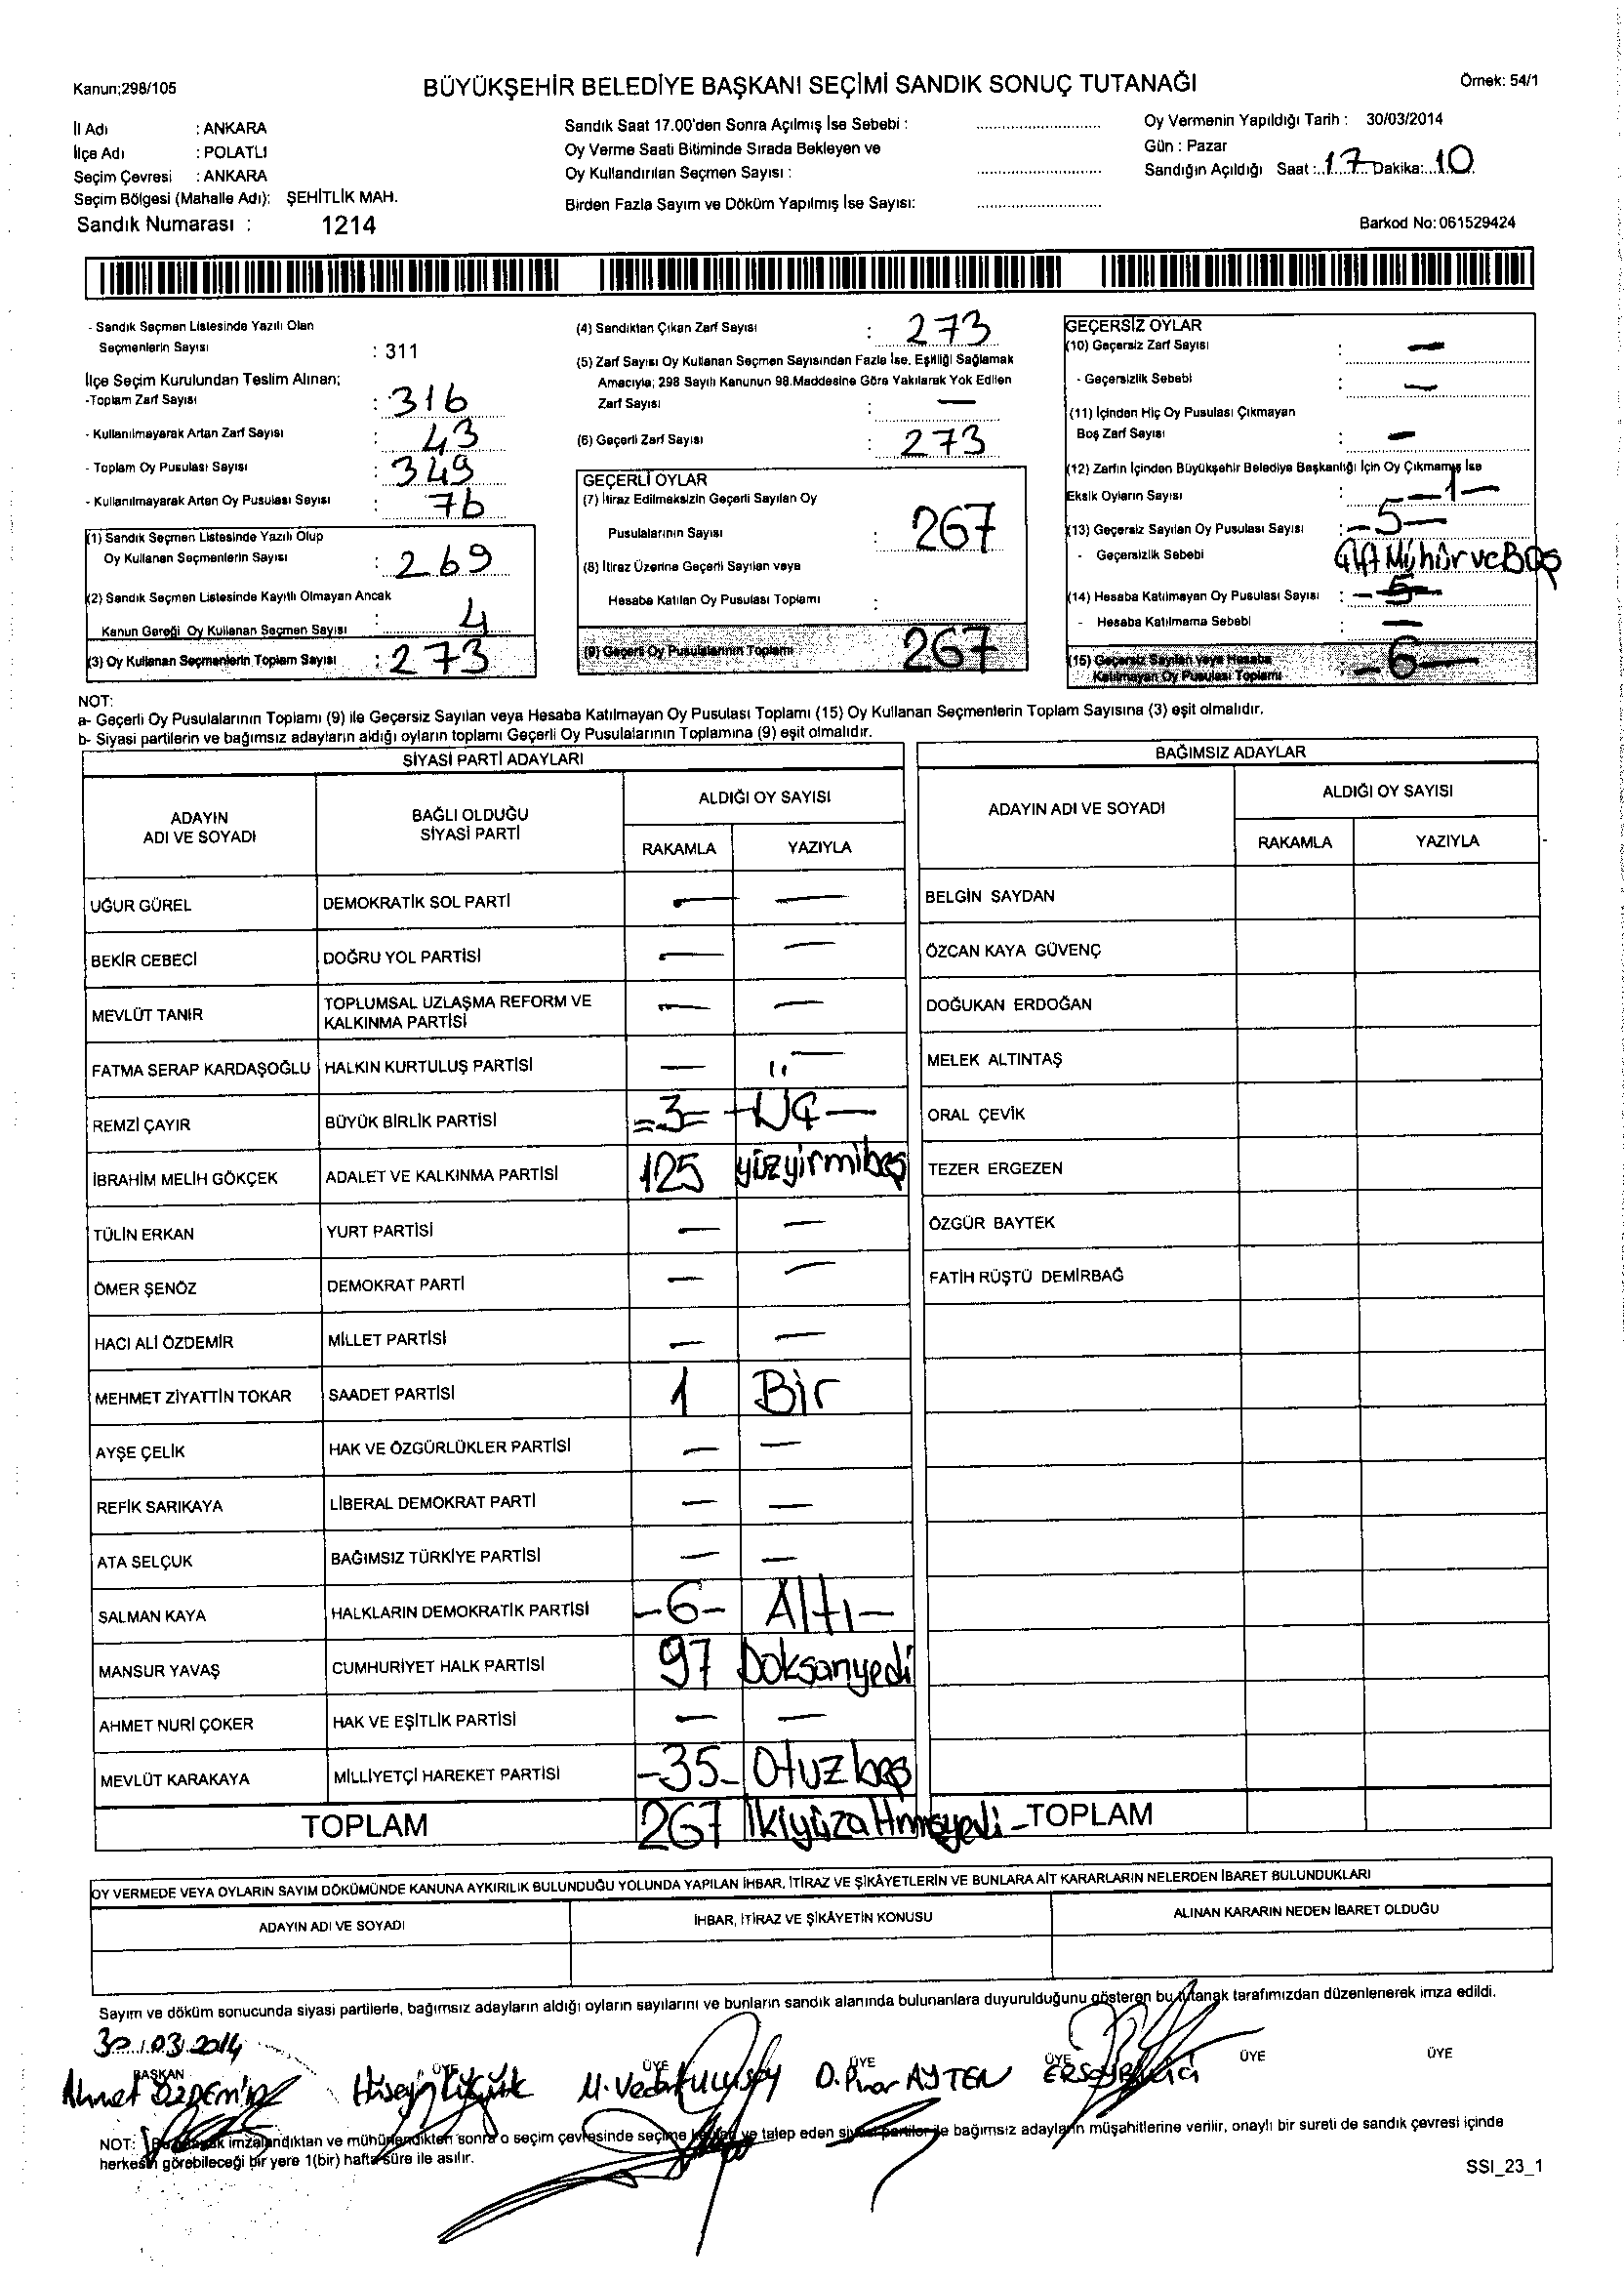 Kanun;298/105
BÜYÜKŞEHİR BELEDİYE BAŞKANI SEÇİMİ SANDIK SONUÇ TUTANAĞI
Örnek: 54/1
İl Adı : ANKARA
İlçe Adı : POLATLI
Seçim Çevresi : ANKARA
Seçim Bölgesi (Mahalle Adı): ŞEHİTLİK MAH.
Sandık Numarası : 1214
Sandık Saat 17.00'den Sonra Açılmış İse Sebebi :
Oy Verme Saati Bitiminde Sırada Bekleyen ve
Oy Kullandırılan Seçmen Sayısı :
Birden Fazla Sayım ve Döküm Yapılmış İse Sayısı:
Oy Vermenin Yapıldığı Tarih : 30/03/2014
Gün : Pazar
Sandığın Açıldığı Saat : 17 Dakika: 10
Barkod No: 061529424
- Sandık Seçmen Listesinde Yazılı Olan
Seçmenlerin Sayısı : 311
İlçe Seçim Kurulundan Teslim Alınan;
-Toplam Zarf Sayısı : 316
- Kullanılmayarak Artan Zarf Sayısı : 43
- Toplam Oy Pusulası Sayısı : 349
- Kullanılmayarak Artan Oy Pusulası Sayısı : 76
(1) Sandık Seçmen Listesinde Yazılı Olup
Oy Kullanan Seçmenlerin Sayısı : 269
(2) Sandık Seçmen Listesinde Kayıtlı Olmayan Ancak
Kanun Gereği Oy Kullanan Seçmen Sayısı : 4
(3) Oy Kullanan Seçmenlerin Toplam Sayısı : 273
(4) Sandıktan Çıkan Zarf Sayısı : 273
(5) Zarf Sayısı Oy Kullanan Seçmen Sayısından Fazla İse, Eşitliği Sağlamak
Amacıyla; 298 Sayılı Kanunun 98.Maddesine Göre Yakılarak Yok Edilen
Zarf Sayısı : —
(6) Geçerli Zarf Sayısı : 273
GEÇERLİ OYLAR
(7) İtiraz Edilmeksizin Geçerli Sayılan Oy
Pusulalarının Sayısı : 267
(8) İtiraz Üzerine Geçerli Sayılan veya
Hesaba Katılan Oy Pusulası Toplamı :
(9) Geçerli Oy Pusulalarının Toplamı 267
GEÇERSİZ OYLAR
(10) Geçersiz Zarf Sayısı : —
- Geçersizlik Sebebi : —
(11) İçinden Hiç Oy Pusulası Çıkmayan
Boş Zarf Sayısı : —
(12) Zarfın İçinden Büyükşehir Belediye Başkanlığı İçin Oy Çıkmamış İse
Eksik Oyların Sayısı : —1—
(13) Geçersiz Sayılan Oy Pusulası Sayısı : —5—
- Geçersizlik Sebebi Mühür ve Boş
(14) Hesaba Katılmayan Oy Pusulası Sayısı : —5—
- Hesaba Katılmama Sebebi : —
(15) Geçersiz Sayılan veya Hesaba
Katılmayan Oy Pusulası Toplamı : —6—
NOT:
a- Geçerli Oy Pusulalarının Toplamı (9) ile Geçersiz Sayılan veya Hesaba Katılmayan Oy Pusulası Toplamı (15) Oy Kullanan Seçmenlerin Toplam Sayısına (3) eşit olmalıdır.
b- Siyasi partilerin ve bağımsız adayların aldığı oyların toplamı Geçerli Oy Pusulalarının Toplamına (9) eşit olmalıdır.
SİYASİ PARTİ ADAYLARI
ADAYIN ADI VE SOYADI
BAĞLI OLDUĞU SİYASİ PARTİ
ALDIĞI OY SAYISI
RAKAMLA YAZIYLA
UĞUR GÜREL DEMOKRATİK SOL PARTİ — —
BEKİR CEBECİ DOĞRU YOL PARTİSİ — —
MEVLÜT TANIR TOPLUMSAL UZLAŞMA REFORM VE KALKINMA PARTİSİ — —
FATMA SERAP KARDAŞOĞLU HALKIN KURTULUŞ PARTİSİ — —
REMZİ ÇAYIR BÜYÜK BİRLİK PARTİSİ =3= —Üç—
İBRAHİM MELİH GÖKÇEK ADALET VE KALKINMA PARTİSİ 125 yüzyirmibeş
TÜLİN ERKAN YURT PARTİSİ — —
ÖMER ŞENÖZ DEMOKRAT PARTİ — —
HACI ALİ ÖZDEMİR MİLLET PARTİSİ — —
MEHMET ZİYATTİN TOKAR SAADET PARTİSİ 1 Bir
AYŞE ÇELİK HAK VE ÖZGÜRLÜKLER PARTİSİ — —
REFİK SARIKAYA LİBERAL DEMOKRAT PARTİ — —
ATA SELÇUK BAĞIMSIZ TÜRKİYE PARTİSİ — —
SALMAN KAYA HALKLARIN DEMOKRATİK PARTİSİ -6- Altı—
MANSUR YAVAŞ CUMHURİYET HALK PARTİSİ 97 Doksanyedi
AHMET NURİ ÇOKER HAK VE EŞİTLİK PARTİSİ — —
MEVLÜT KARAKAYA MİLLİYETÇİ HAREKET PARTİSİ -35- Otuzbeş
TOPLAM 267 İkiyüzaltmışyedi-
BAĞIMSIZ ADAYLAR
ADAYIN ADI VE SOYADI
ALDIĞI OY SAYISI
RAKAMLA YAZIYLA
BELGİN SAYDAN
ÖZCAN KAYA GÜVENÇ
DOĞUKAN ERDOĞAN
MELEK ALTINTAŞ
ORAL ÇEVİK
TEZER ERGEZEN
ÖZGÜR BAYTEK
FATİH RÜŞTÜ DEMİRBAĞ
TOPLAM
OY VERMEDE VEYA OYLARIN SAYIM DÖKÜMÜNDE KANUNA AYKIRILIK BULUNDUĞU YOLUNDA YAPILAN İHBAR, İTİRAZ VE ŞİKÂYETLERİN VE BUNLARA AİT KARARLARIN NELERDEN İBARET BULUNDUKLARI
ADAYIN ADI VE SOYADI İHBAR, İTİRAZ VE ŞİKÂYETİN KONUSU ALINAN KARARIN NEDEN İBARET OLDUĞU
Sayım ve döküm sonucunda siyasi partilerle, bağımsız adayların aldığı oyların sayılarını ve bunların sandık alanında bulunanlara duyurulduğunu gösteren bu tutanak tarafımızdan düzenlenerek imza edildi.
30.03.2014
BAŞKAN ÜYE ÜYE ÜYE ÜYE ÜYE ÜYE
Ahmet ÖZDEMİR Hüseyin Küçük M. Vedat D. Pınar AYTEN
NOT: Bu tutanak imzalandıktan ve mühürlendikten sonra o seçim çevresinde seçime katılan ve talep eden siyasi partiler ile bağımsız adayların müşahitlerine verilir, onaylı bir sureti de sandık çevresi içinde
herkesin görebileceği bir yere 1(bir) hafta süre ile asılır.
SSI_23_1